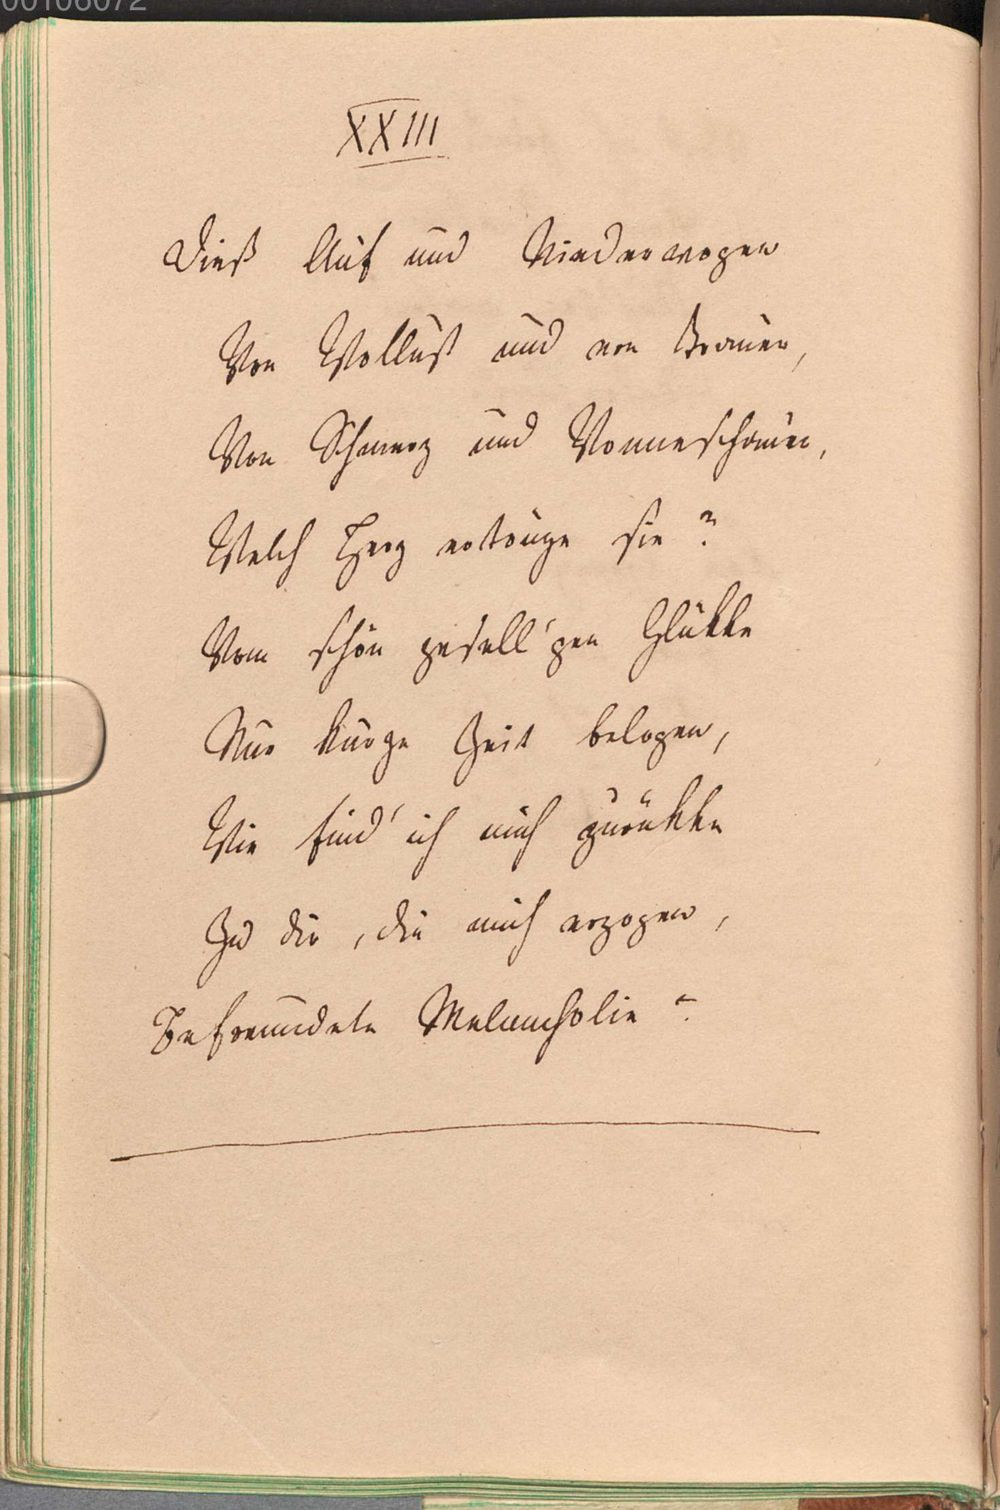 00106072
XXIII
Dieß Auf und Niederwogen
Von Wollust und von Trauer,
Von Schmerz und Wonneschauer,
Welch Herz ertrüge sie?
Vom schön gesell'gen Glükke
Nur kurze Zeit belogen,
Wie find' ich mich zurükke
Zu dir, die mich erzogen,
Befreundete Melancholie